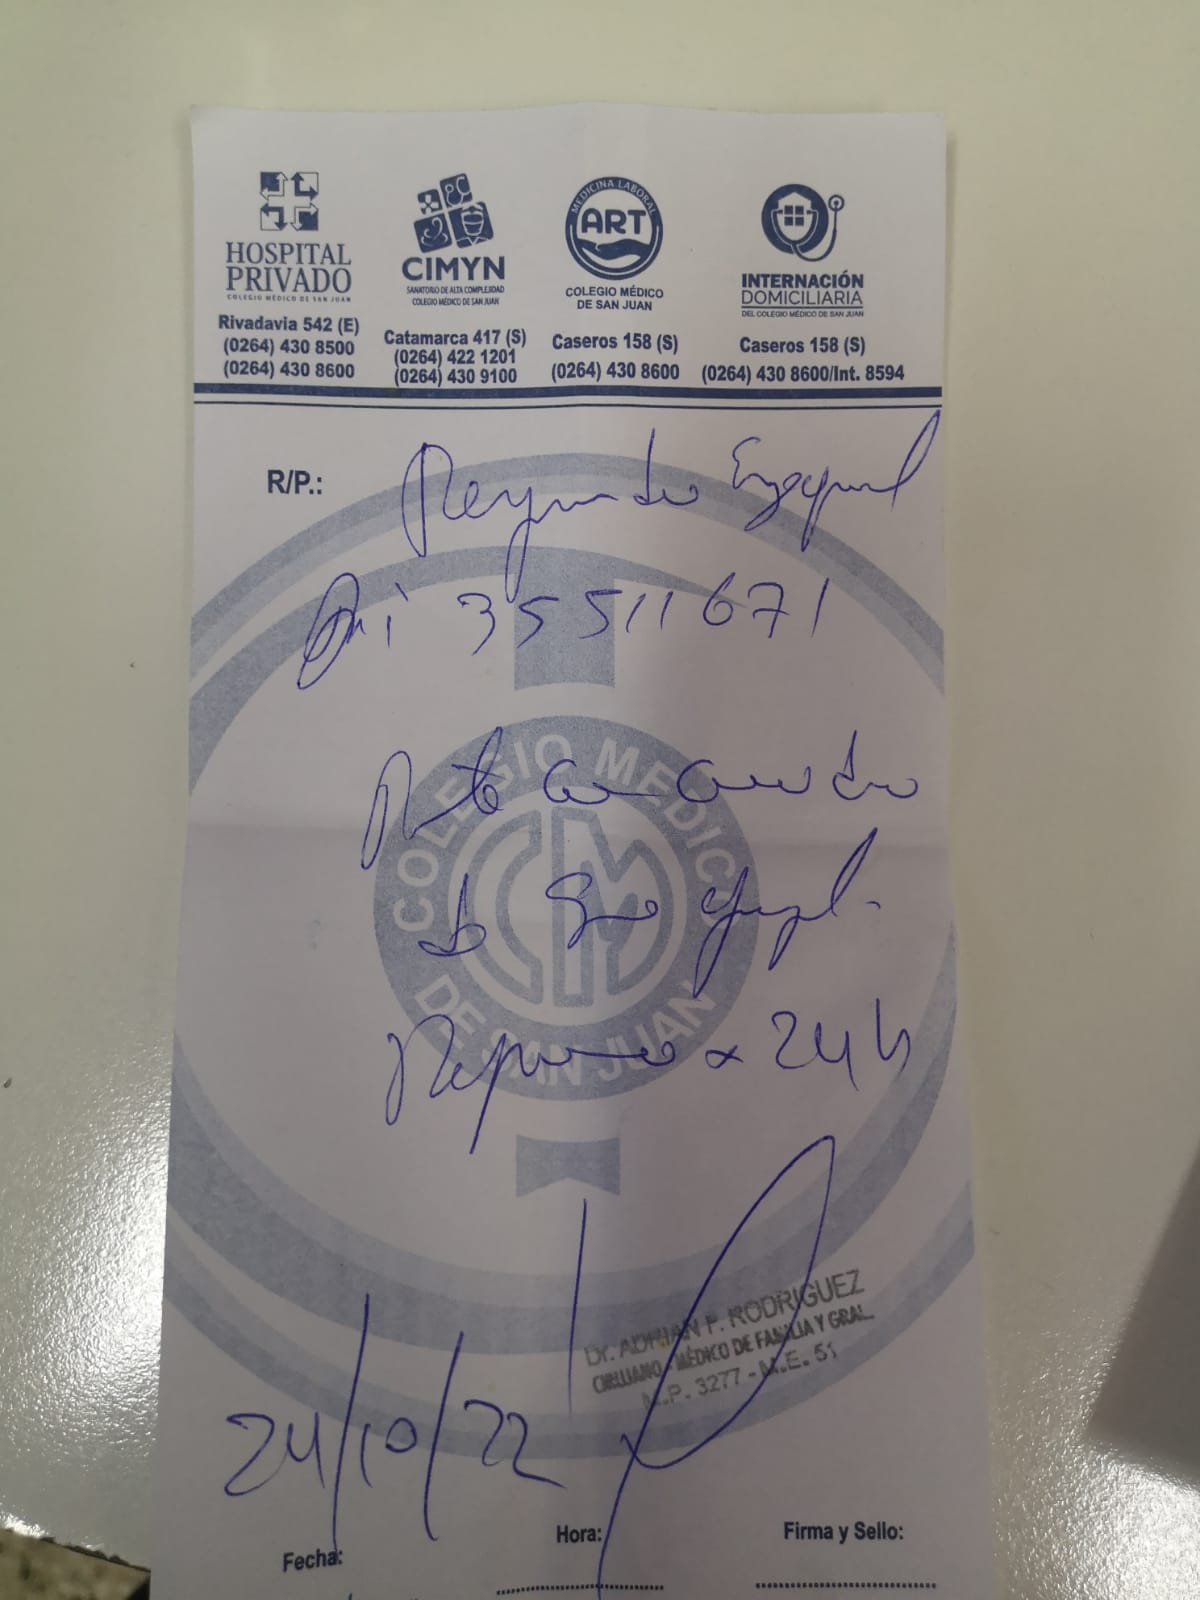 HOSPITAL
PRIVADO
COLEGIO MÉDICO DE SAN JUAN
Rivadavia 542 (E)
(0264) 430 8500
(0264) 430 8600
CIMYN
SANATORIO DE ALTA COMPLEJIDAD
COLEGIO MÉDICO DE SAN JUAN
Catamarca 417 (S)
(0264) 422 1201
(0264) 430 9100
MEDICINA LABORAL
ART
COLEGIO MÉDICO
DE SAN JUAN
Caseros 158 (S)
(0264) 430 8600
INTERNACIÓN
DOMICILIARIA
DEL COLEGIO MÉDICO DE SAN JUAN
Caseros 158 (S)
(0264) 430 8600/Int. 8594
R/P.:
Ezequiel
Dni 35511671
COLEGIO MEDICO
DE SAN JUAN
CM
Pte con cuadro
de
Reposo x 24 h
Dr. ADRIAN P. RODRIGUEZ
CIRUJANO - MÉDICO DE FAMILIA Y GRAL.
M.P. 3277 - M.E. 51
24/10/22
Fecha:
Hora:
Firma y Sello: